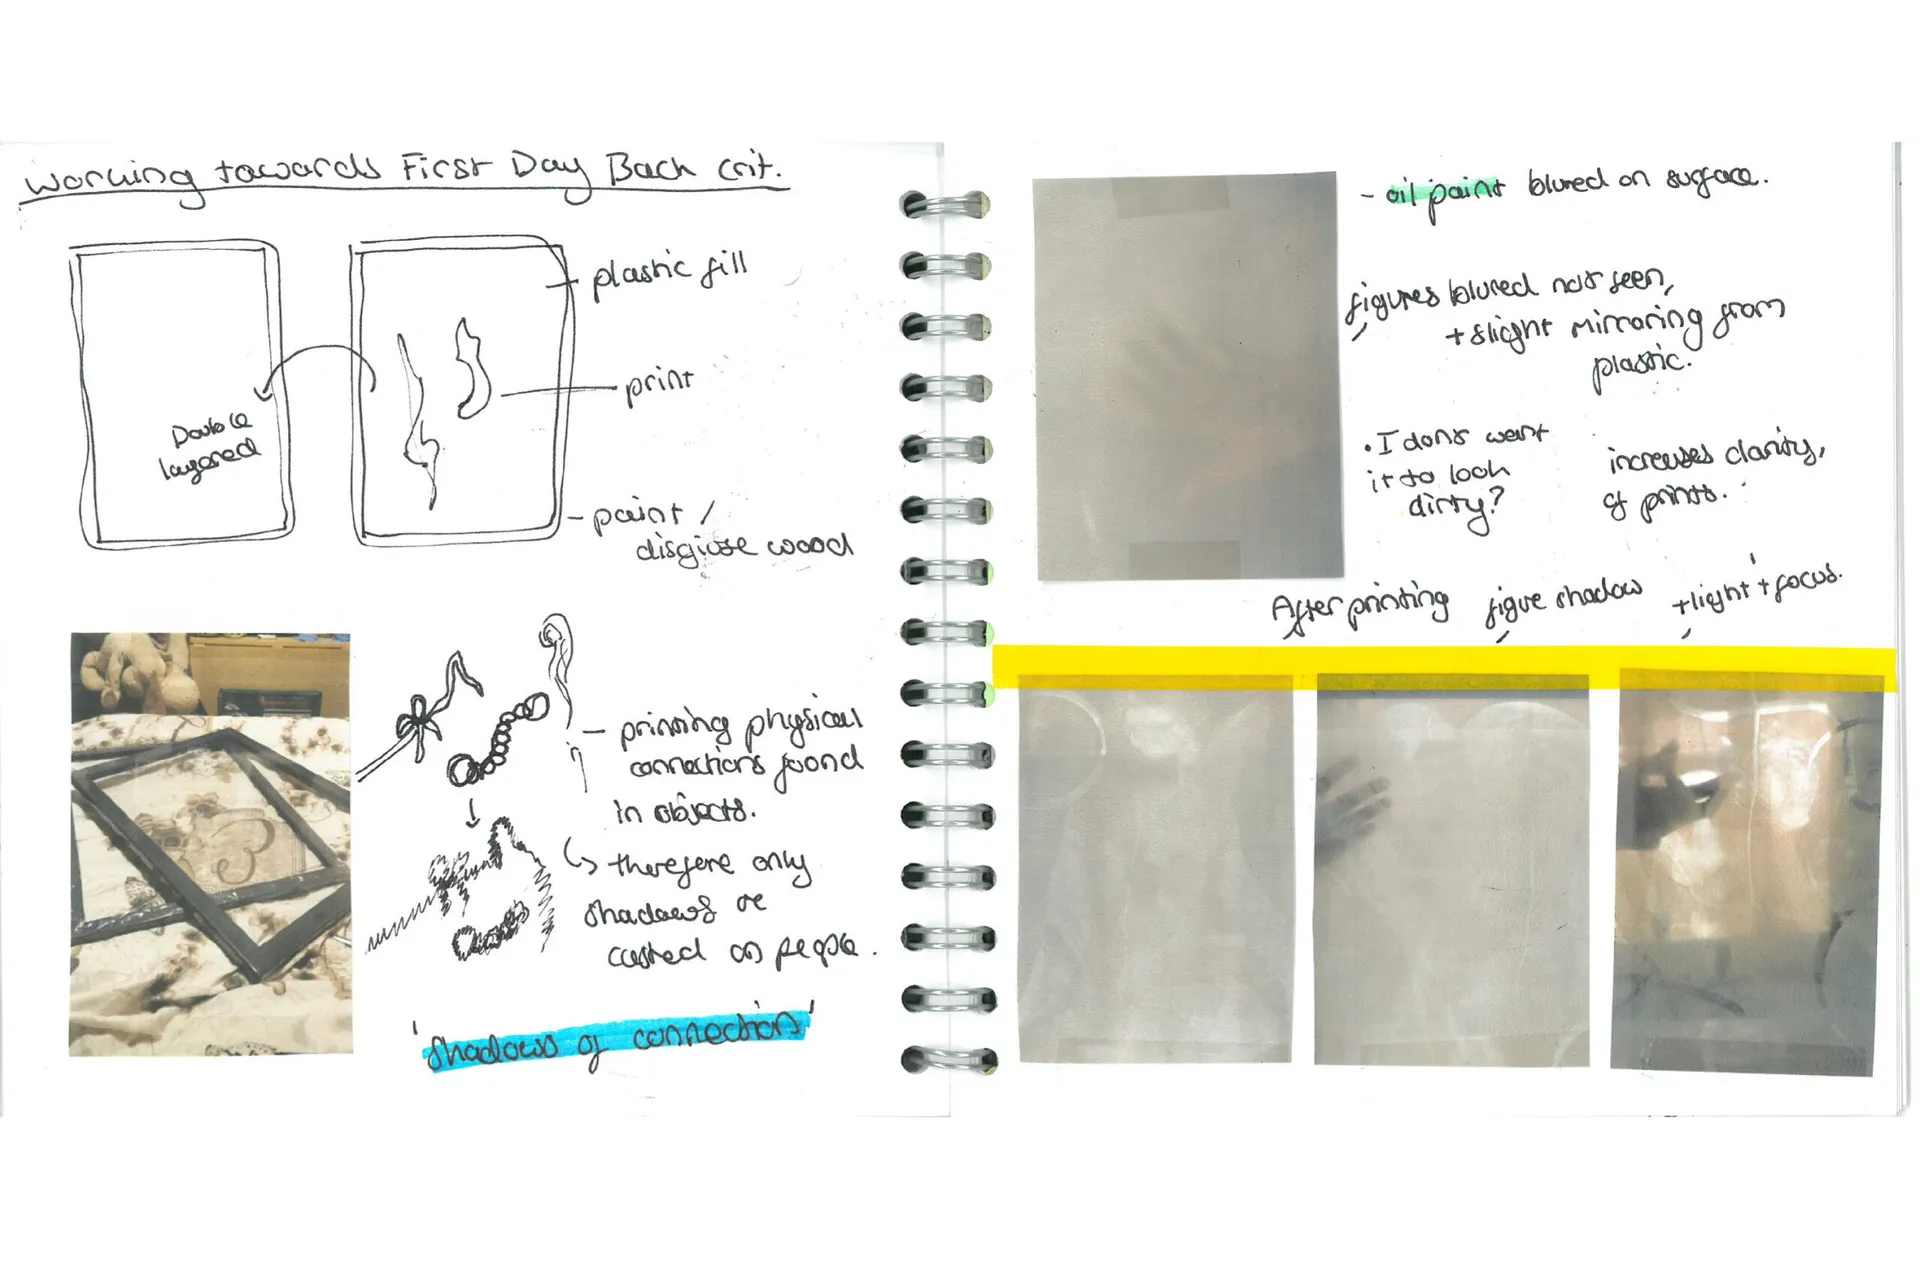 Working towards First Day Back crit.
plastic fill
print
Double
layered
paint /
disgiose wood
- printing physical
connections foond
in objects.
therefere only
shadows are
casted on people.
'shadows of connection'
- oil paint blured on surface.
figures blured not seen,
+ slight mirroring from
plastic.
• I dont want
it to look
dirty?
increases clarity,
of prints.
After printing
figue shadow
+ light + focus.